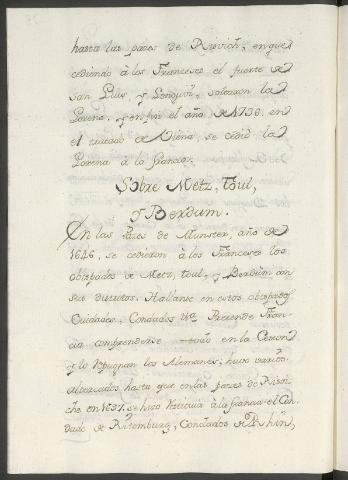 hasta las pazes de Risvich, en que
cediendo à los Franceses el fuerte de
San Luis, y Longvvi, soltaron la
Lorena, y en fin el año de 1736. en
el tratado de Viena, se cediò la
Lorena à la francia.
Sobre Metz, toul,
y Berdum.
En las Pazes de Munster, año de
1646, se cedieron à los Franceses los
obispados de Metz, toul, y Berdum con
sus distritos. Hallanse en estos obispados
Ciudades, Condados &a. Pretende Fran-
cia comprenderse todo en la Cesion
y lo repugnan los Alemanes, huvo varios
altercados hasta que en las pazes de Risvi-
che en 1697. se hizo la francia el Con-
dado de Ritemburg, Condados de Rhin,